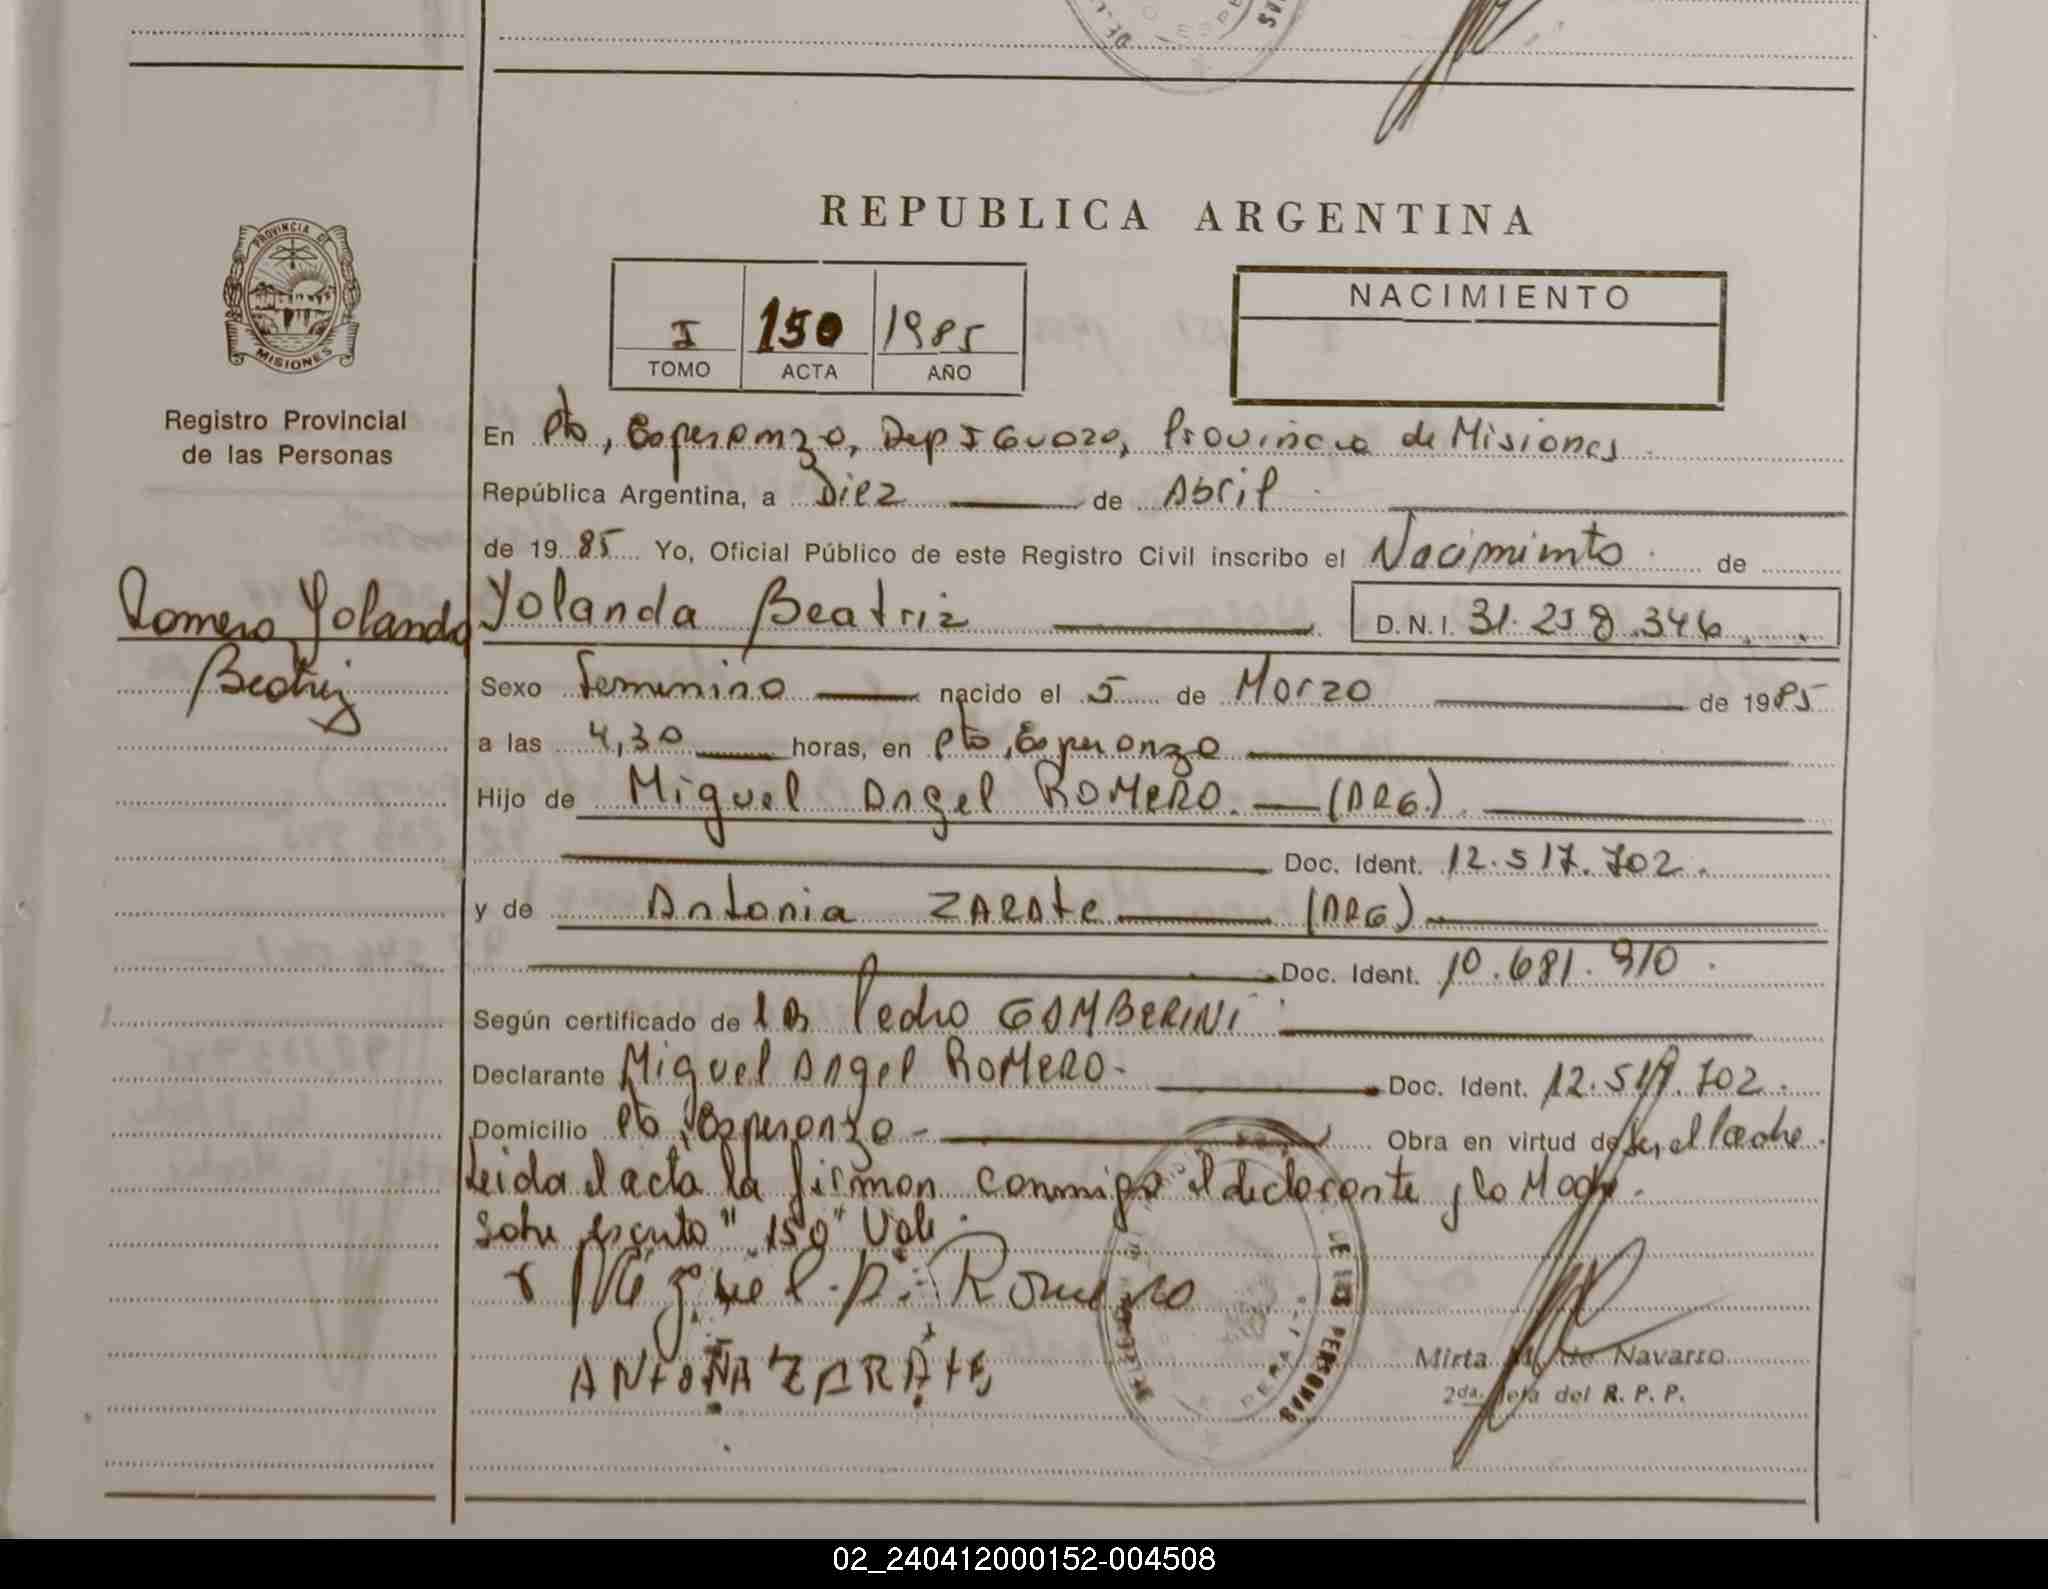 REPUBLICA ARGENTINA
PROVINCIA DE
MISIONES
Registro Provincial
de las Personas
Romero Yolanda
Beatriz
I 150 1985
TOMO ACTA AÑO
NACIMIENTO
En Pto, Esperanza, Dep IGuazu, Provincia de Misiones
República Argentina, a Diez de Abril
de 1985 Yo, Oficial Público de este Registro Civil inscribo el Nacimiento de
Yolanda Beatriz D.N.I. 31.258.346
Sexo Femenino nacido el 5 de Marzo de 1985
a las 4,30 horas, en Pto, Esperanza
Hijo de Miguel Angel ROMERO. (ARG.)
Doc. Ident. 12.517.702.
y de Antonia ZARATE (ARG)
Doc. Ident. 10.681.910.
Según certificado de Pedro GAMBERINI
Declarante Miguel Angel ROMERO- Doc. Ident. 12.517.702.
Domicilio Pto, Esperanza- Obra en virtud de Ser el Padre.
Leida el acta la firman conmigo el declarante y la Madre.
Sobre escrito "150" Vale.
Miguel.A. Romero
ZARATE
DE LAS PERSONAS
Mirta de Navarro
2da. Jefa del R. P. P.
02_240412000152-004508